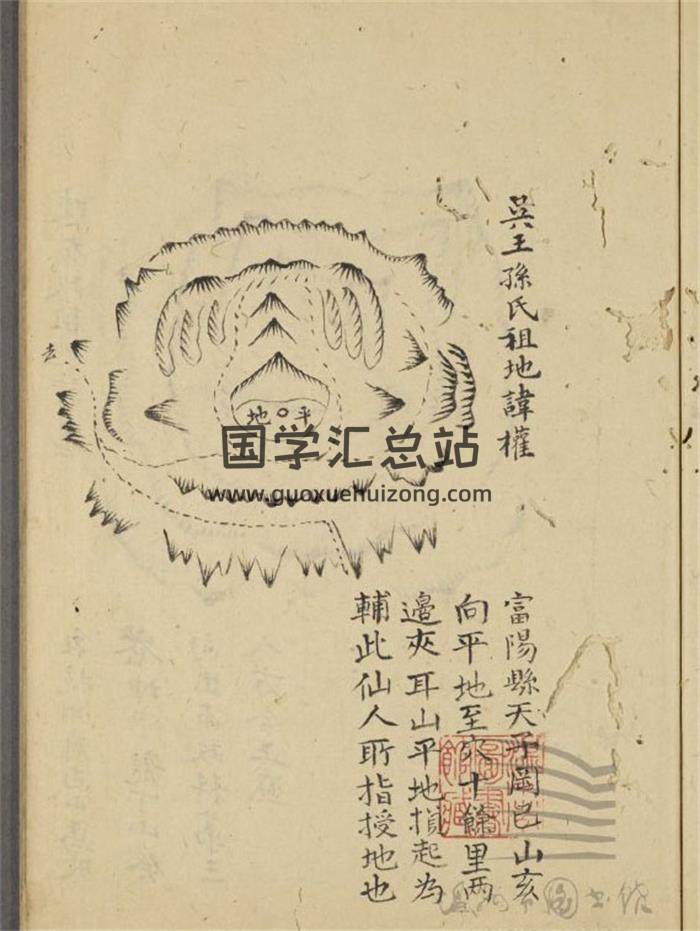 吳王孫氏祖地諱權
富陽縣天子岡巳山亥
向平地至六十餘里兩
邉夾耳山平地揁起為
輔此仙人所指授地也
去
平
地
国学汇总站
www.guoxuehuizong.com